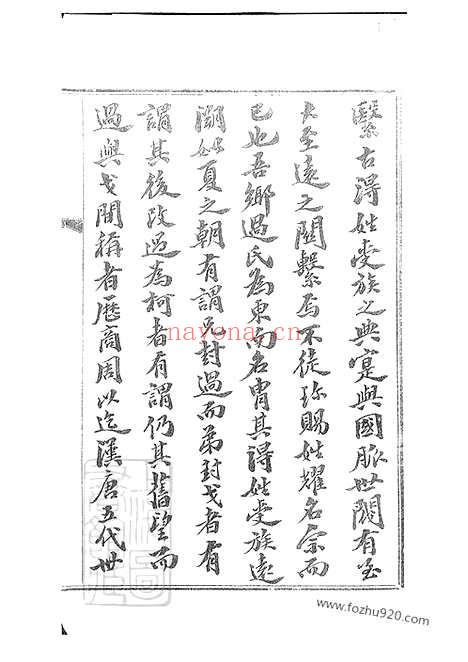 繄古得姓受族之典寔與國脈世閥有至
大至遠之關繫焉不徒珎賜姓耀名宗而
已也吾鄉過氏為東南名胄其得姓受族遠
溯於夏之朝有謂兄封過而弟封戈者有
謂其後改過為柯者有謂仍其舊望而
過與戈間稱者歷商周以迄漢唐五代世
nayona.cn
www.fozhu920.com